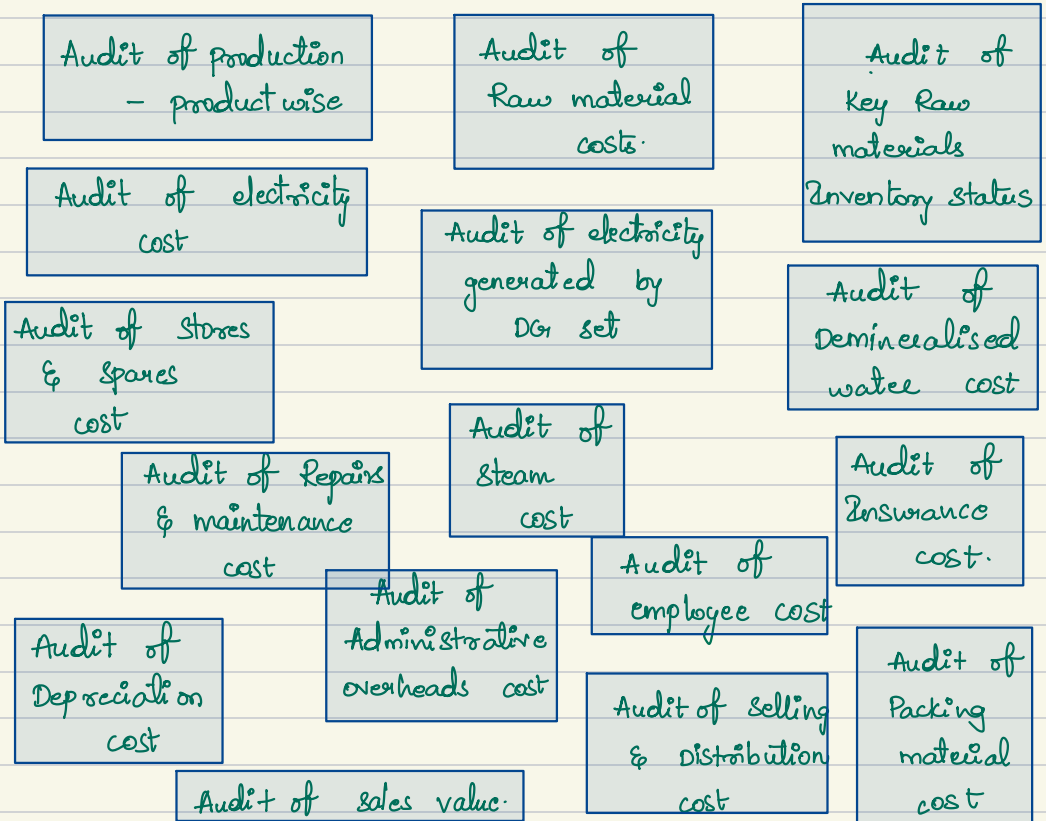 Audit of production
- productwise
Audit of
Raw material
costs.
Audit of
Key Raw
materials
Inventory status
Audit of electricity
cost
Audit of electricity
generated by
DG set
Audit of
Demineralised
water cost
Audit of stores
& spares
cost
Audit of
steam
cost
Audit of
Insurance
cost.
Audit of Repairs
& maintenance
cost
Audit of
employee cost
Audit of
Administrative
overheads cost
Audit of
Depreciation
cost
Audit of selling
& Distribution
cost
Audit of
Packing
material
cost
Audit of sales value.